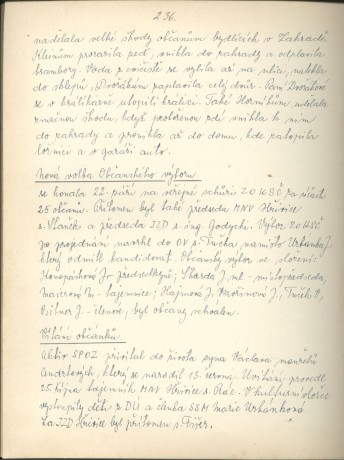 236.
nadělala velké škody občanům bydlících v Zahradě.
Kleinům prorazila plot, vnikla do zahrady a odplavila
brambory. Voda z cvičiště se vylila až na ulici, natekla
do sklepů, Dvořákům zaplavila celý dvůr. Paní Dvořákové
se v králíkárně utopili králíci. Také Hornikům udělala
značnou škodu, když prolomenou zdí vnikla k nim
do zahrady a pronikla až do domu, kde zatopila
ložnici a v garáži auto.
Nová volba Občanského výboru
se konala 22. září na veřejné schůzi ZO KSČ za účasti
25 občanů. Přítomen byl také předseda MNV Hřivice
s. Staněk a předseda JZD s. ing. Godycki. Výbor ZO KSČ
po projednání navrhl do OV s. Fučka namísto Urbánka J.
který odmítl kandidovat. Občanský výbor ve složení:
předsedkyně; Škarda J. ml. - místopředseda,
tajemnice; Hajmová J.,
Bitner J. - členové, byl občany schválen.
Vítání občánků.
Aktiv SPOZ přivítal do života syna Václava manželů
Andrtových, který se narodil 15. června. Uvítání provedl
25. října tajemník MNV Hřivice s. Rác. V kulturní vložce
vystoupily děti z DLI a členka SSM Marie Urbánková
Za JZD Hřivice byl přítomen s. Fišer.